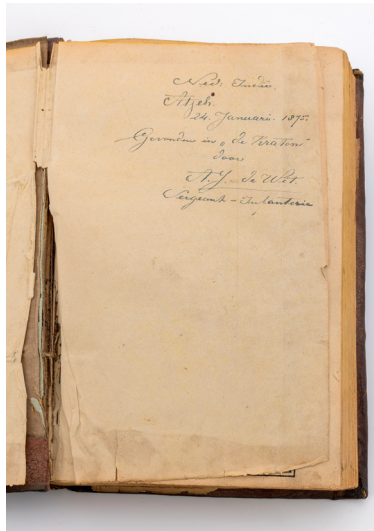 Ned: Indië.
Atjeh.
24. Januari. 1875.
Gevonden in „de Kraton
door
A.J. de Wit.
Sergeant - Infanterie